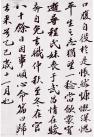 口腹自役於是悵然慷慨深愧
平生之志猶望一稔當斂裳宵
逝尋程氏妹喪于武昌情在駿
奔自免去職仲秋至冬在官
八十餘日因事順心命篇曰歸
去來兮乙巳歲十一月也